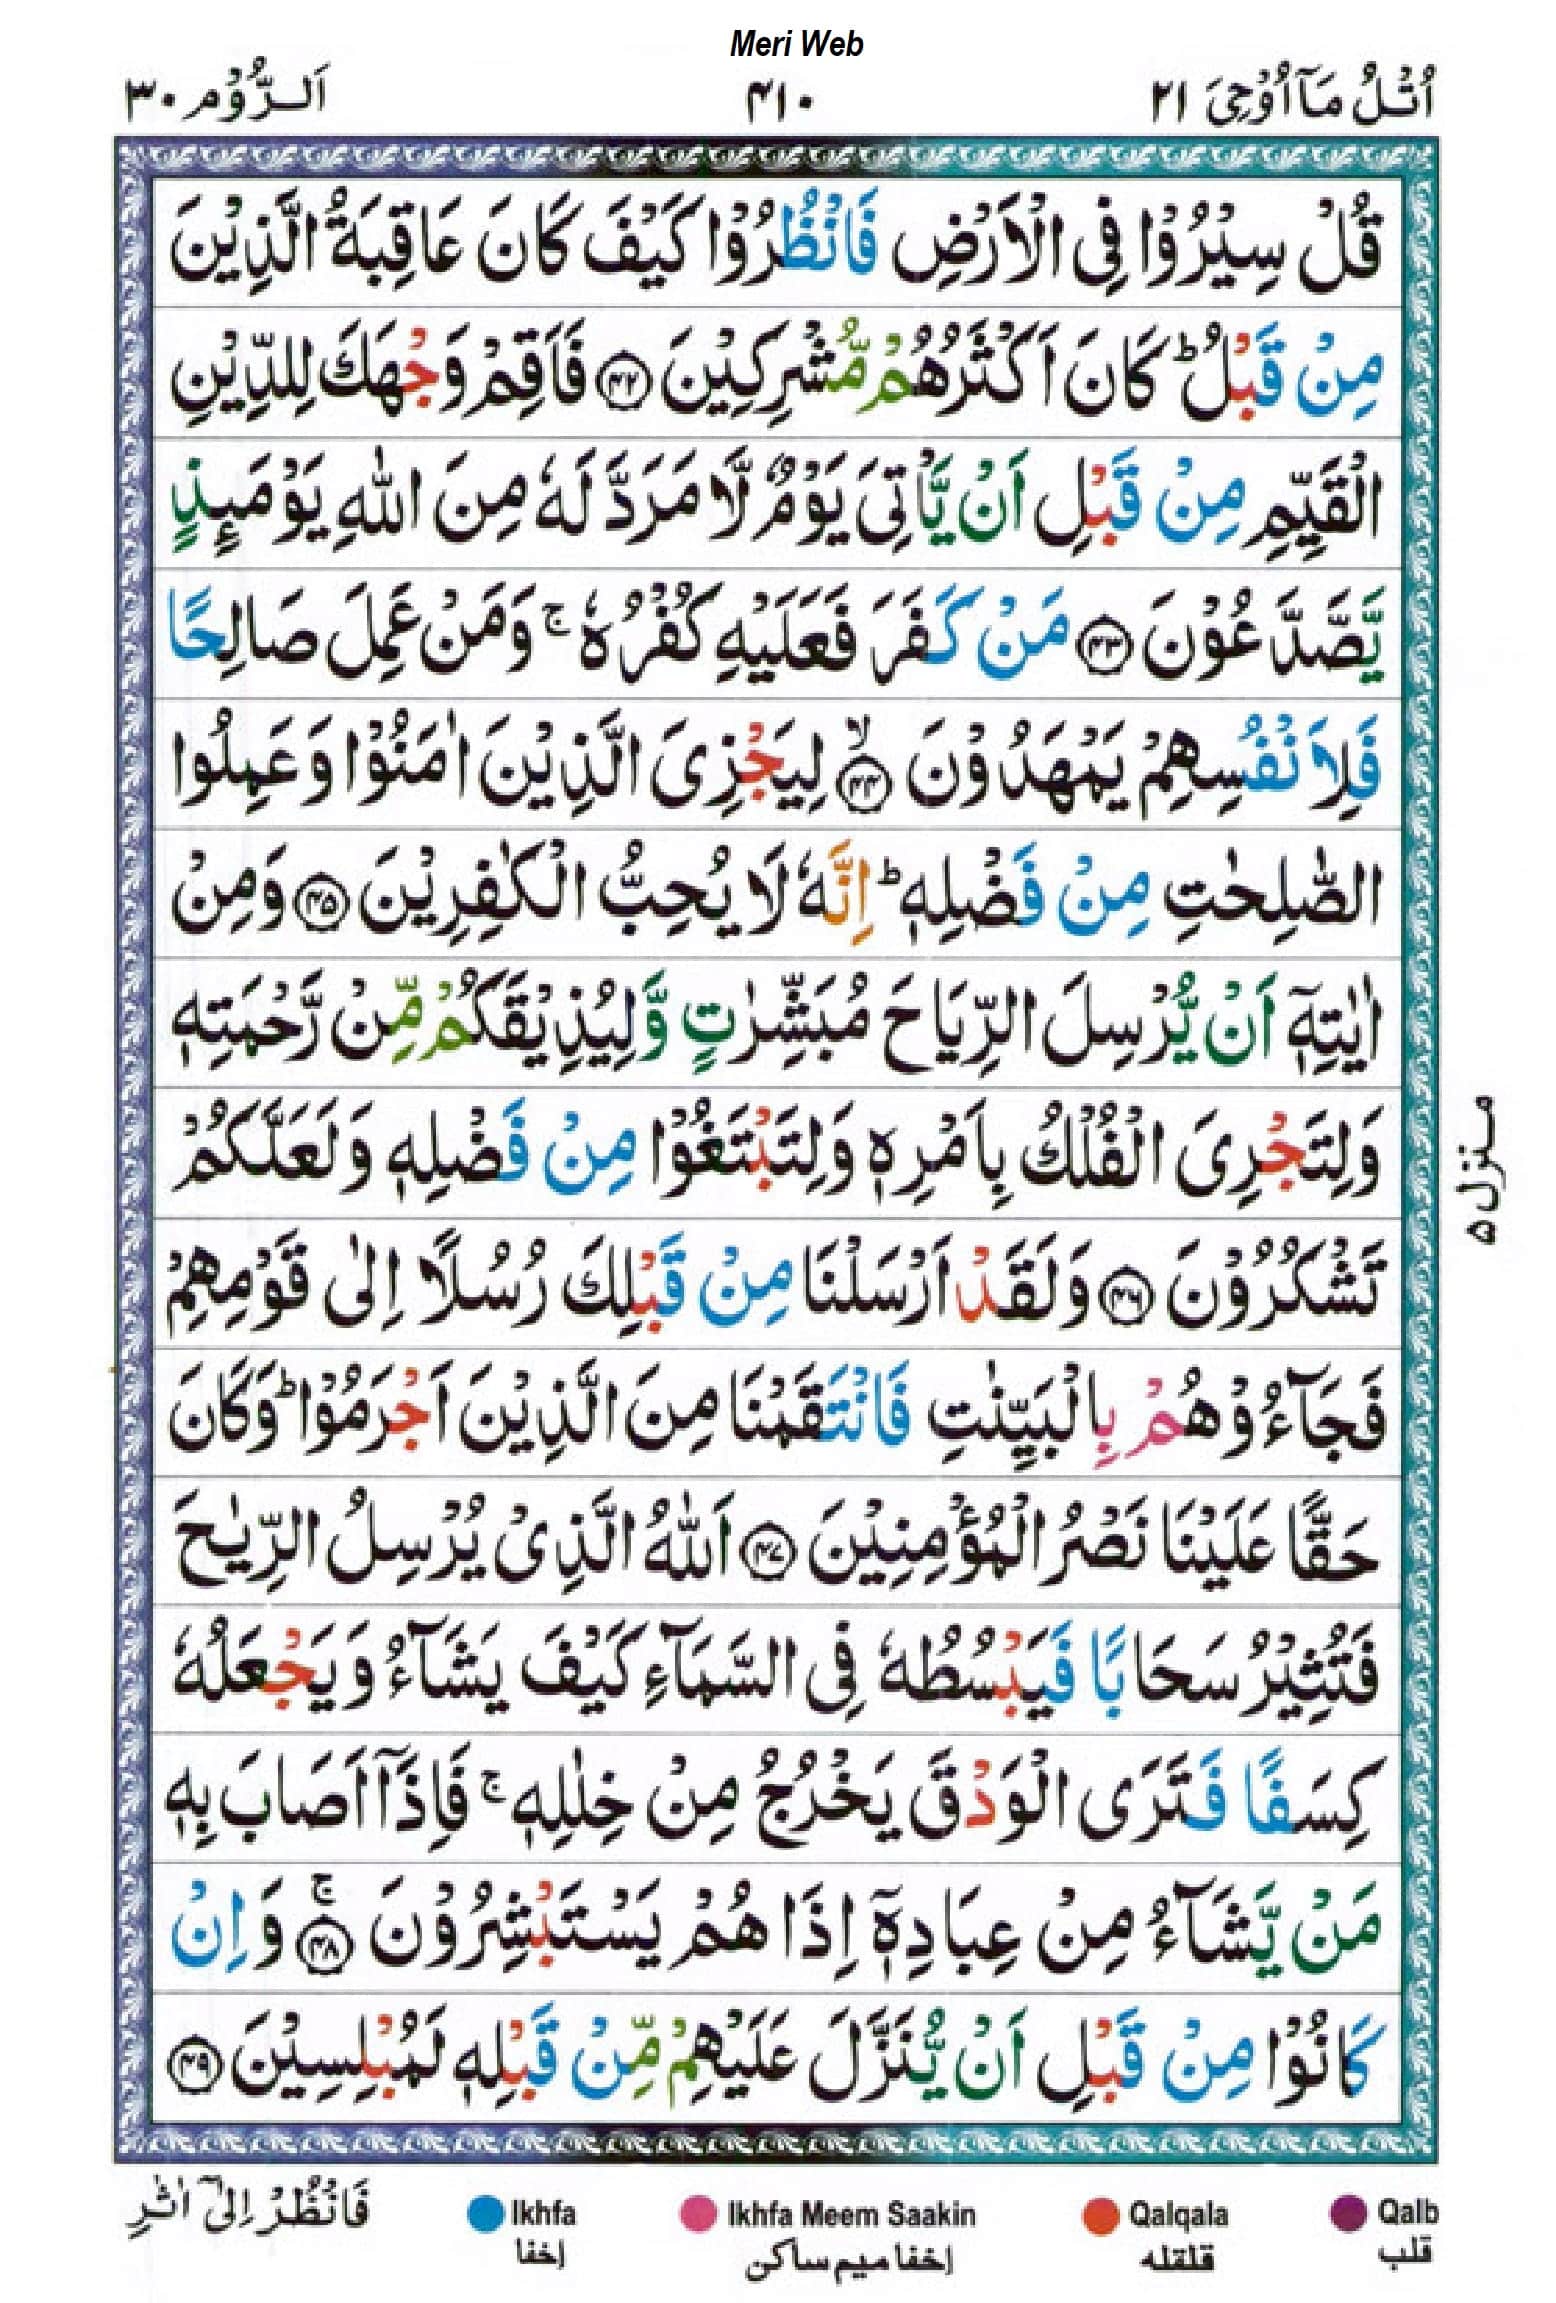 Meri Web
اُتْلُ مَآ اُوْحِیَ ۲۱
۴۱۰
اَلـرُّوْم ۳۰
قُلْ سِیْرُوْا فِی الْاَرْضِ فَانْظُرُوْا كَیْفَ كَانَ عَاقِبَةُ الَّذِیْنَ
مِنْ قَبْلُ ؕ كَانَ اَكْثَرُهُمْ مُّشْرِكِیْنَ ۝۴۲ فَاَقِمْ وَجْهَكَ لِلدِّیْنِ
الْقَیِّمِ مِنْ قَبْلِ اَنْ یَّاْتِیَ یَوْمٌ لَّا مَرَدَّ لَهٗ مِنَ اللّٰهِ یَوْمَىِٕذٍ
یَّصَّدَّعُوْنَ ۝۴۳ مَنْ كَفَرَ فَعَلَیْهِ كُفْرُهٗ ۚ وَمَنْ عَمِلَ صَالِحًا
فَلِاَنْفُسِهِمْ یَمْهَدُوْنَ ۝۴۴ ۙ لِیَجْزِیَ الَّذِیْنَ اٰمَنُوْا وَعَمِلُوا
الصّٰلِحٰتِ مِنْ فَضْلِهٖ ؕ اِنَّهٗ لَا یُحِبُّ الْكٰفِرِیْنَ ۝۴۵ وَمِنْ
اٰیٰتِهٖۤ اَنْ یُّرْسِلَ الرِّیَاحَ مُبَشِّرٰتٍ وَّلِیُذِیْقَكُمْ مِّنْ رَّحْمَتِهٖ
وَلِتَجْرِیَ الْفُلْكُ بِاَمْرِهٖ وَلِتَبْتَغُوْا مِنْ فَضْلِهٖ وَلَعَلَّكُمْ
تَشْكُرُوْنَ ۝۴۶ وَلَقَدْ اَرْسَلْنَا مِنْ قَبْلِكَ رُسُلًا اِلٰی قَوْمِهِمْ
فَجَآءُوْهُمْ بِالْبَیِّنٰتِ فَانْتَقَمْنَا مِنَ الَّذِیْنَ اَجْرَمُوْا ؕ وَكَانَ
حَقًّا عَلَیْنَا نَصْرُ الْمُؤْمِنِیْنَ ۝۴۷ اَللّٰهُ الَّذِیْ یُرْسِلُ الرِّیٰحَ
فَتُثِیْرُ سَحَابًا فَیَبْسُطُهٗ فِی السَّمَآءِ كَیْفَ یَشَآءُ وَیَجْعَلُهٗ
كِسَفًا فَتَرَی الْوَدْقَ یَخْرُجُ مِنْ خِلٰلِهٖ ۚ فَاِذَاۤ اَصَابَ بِهٖ
مَنْ یَّشَآءُ مِنْ عِبَادِهٖۤ اِذَا هُمْ یَسْتَبْشِرُوْنَ ۝۴۸ ۚ وَاِنْ
كَانُوْا مِنْ قَبْلِ اَنْ یُّنَزَّلَ عَلَیْهِمْ مِّنْ قَبْلِهٖ لَمُبْلِسِیْنَ ۝۴۹
مـنزل ۵
فَانْظُرْ اِلٰۤی اٰثٰرِ
Ikhfa
إخفا
Ikhfa Meem Saakin
إخفا میم ساکن
Qalqala
قلقله
Qalb
قلب